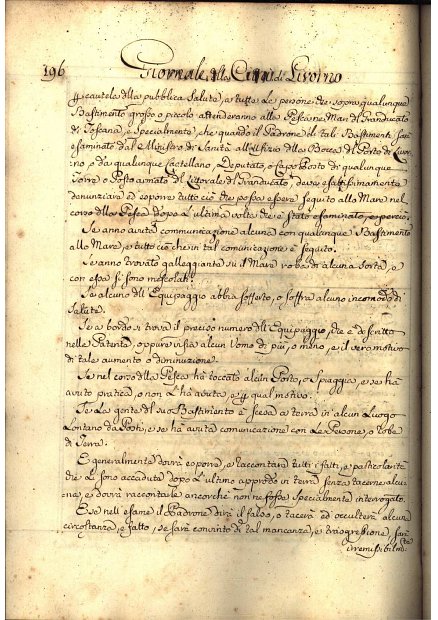 196 Giornale della Città di Livorno
p cautela della pubblica Salute, a tutte Le persone che sopra qualunque
Bastimento grosso o piccolo attenderanno alla Pesca ne Mari del Granducato
di Toscana, e specialmente, che quando il Padrone di tali Bastimenti sarà
esaminato dal Ministro di Sanità all'Ufizio della Bocca del Porto di Livor
no, o da qualunque Castellano, Deputato, o Caposposto di qualunque
Torre o Posto armato del Littorale del Granducato, deva esattissimamente
denunziare ed esporre tutto ciò che possa essere seguito alla Mare nel
corso della Pesca dopo L'ultima volta che è stato esaminato, e perciò.
Se anno avuta communicazione alcuna con qualunque Bastimento
alla Mare, e tutto ciò che in tal comunicazione è seguito.
Se anno trovato galleggiante su il Mare roba di alcuna sorta, e
con essa si sono mescolati.
Se alcuno dell Equipaggio abbia sofferto, o soffra alcuno incomodo di
Salute.
Se a bordo si trova il preciso numero dell Equipaggio, che è descritto
nella Patente, oppure vi sia alcun Uomo di più, o meno, e il vero motivo
di tale aumento o diminuzione.
Se nel corso della Pesca hà toccato alcun Porto, o Spiaggia, e se ha
avuto pratica, o non L'hà avuta, e p qual motivo.
Se La gente del suo Bastimento è scesa a terra in alcun Luogo
Lontano da Posti, e se hà avuta comunicazione con Le Persone, o robe
di Terra.
E generalmente dovrà esporre, e raccontare tutti i fatti, e particolarità
che Li sono accadute dopo L'ultimo approdo in terra senza tacerne alcu
na, e dovrà raccontarle ancorchè non ne fosse specialmente interrogato.
E se nell esame il Padrone dirà il falso, o tacerà ed occulterà alcuna
circostanza, e fatto, se sarà convinto di tal mancanza, e trasgressione, sarà
irremissibilm: